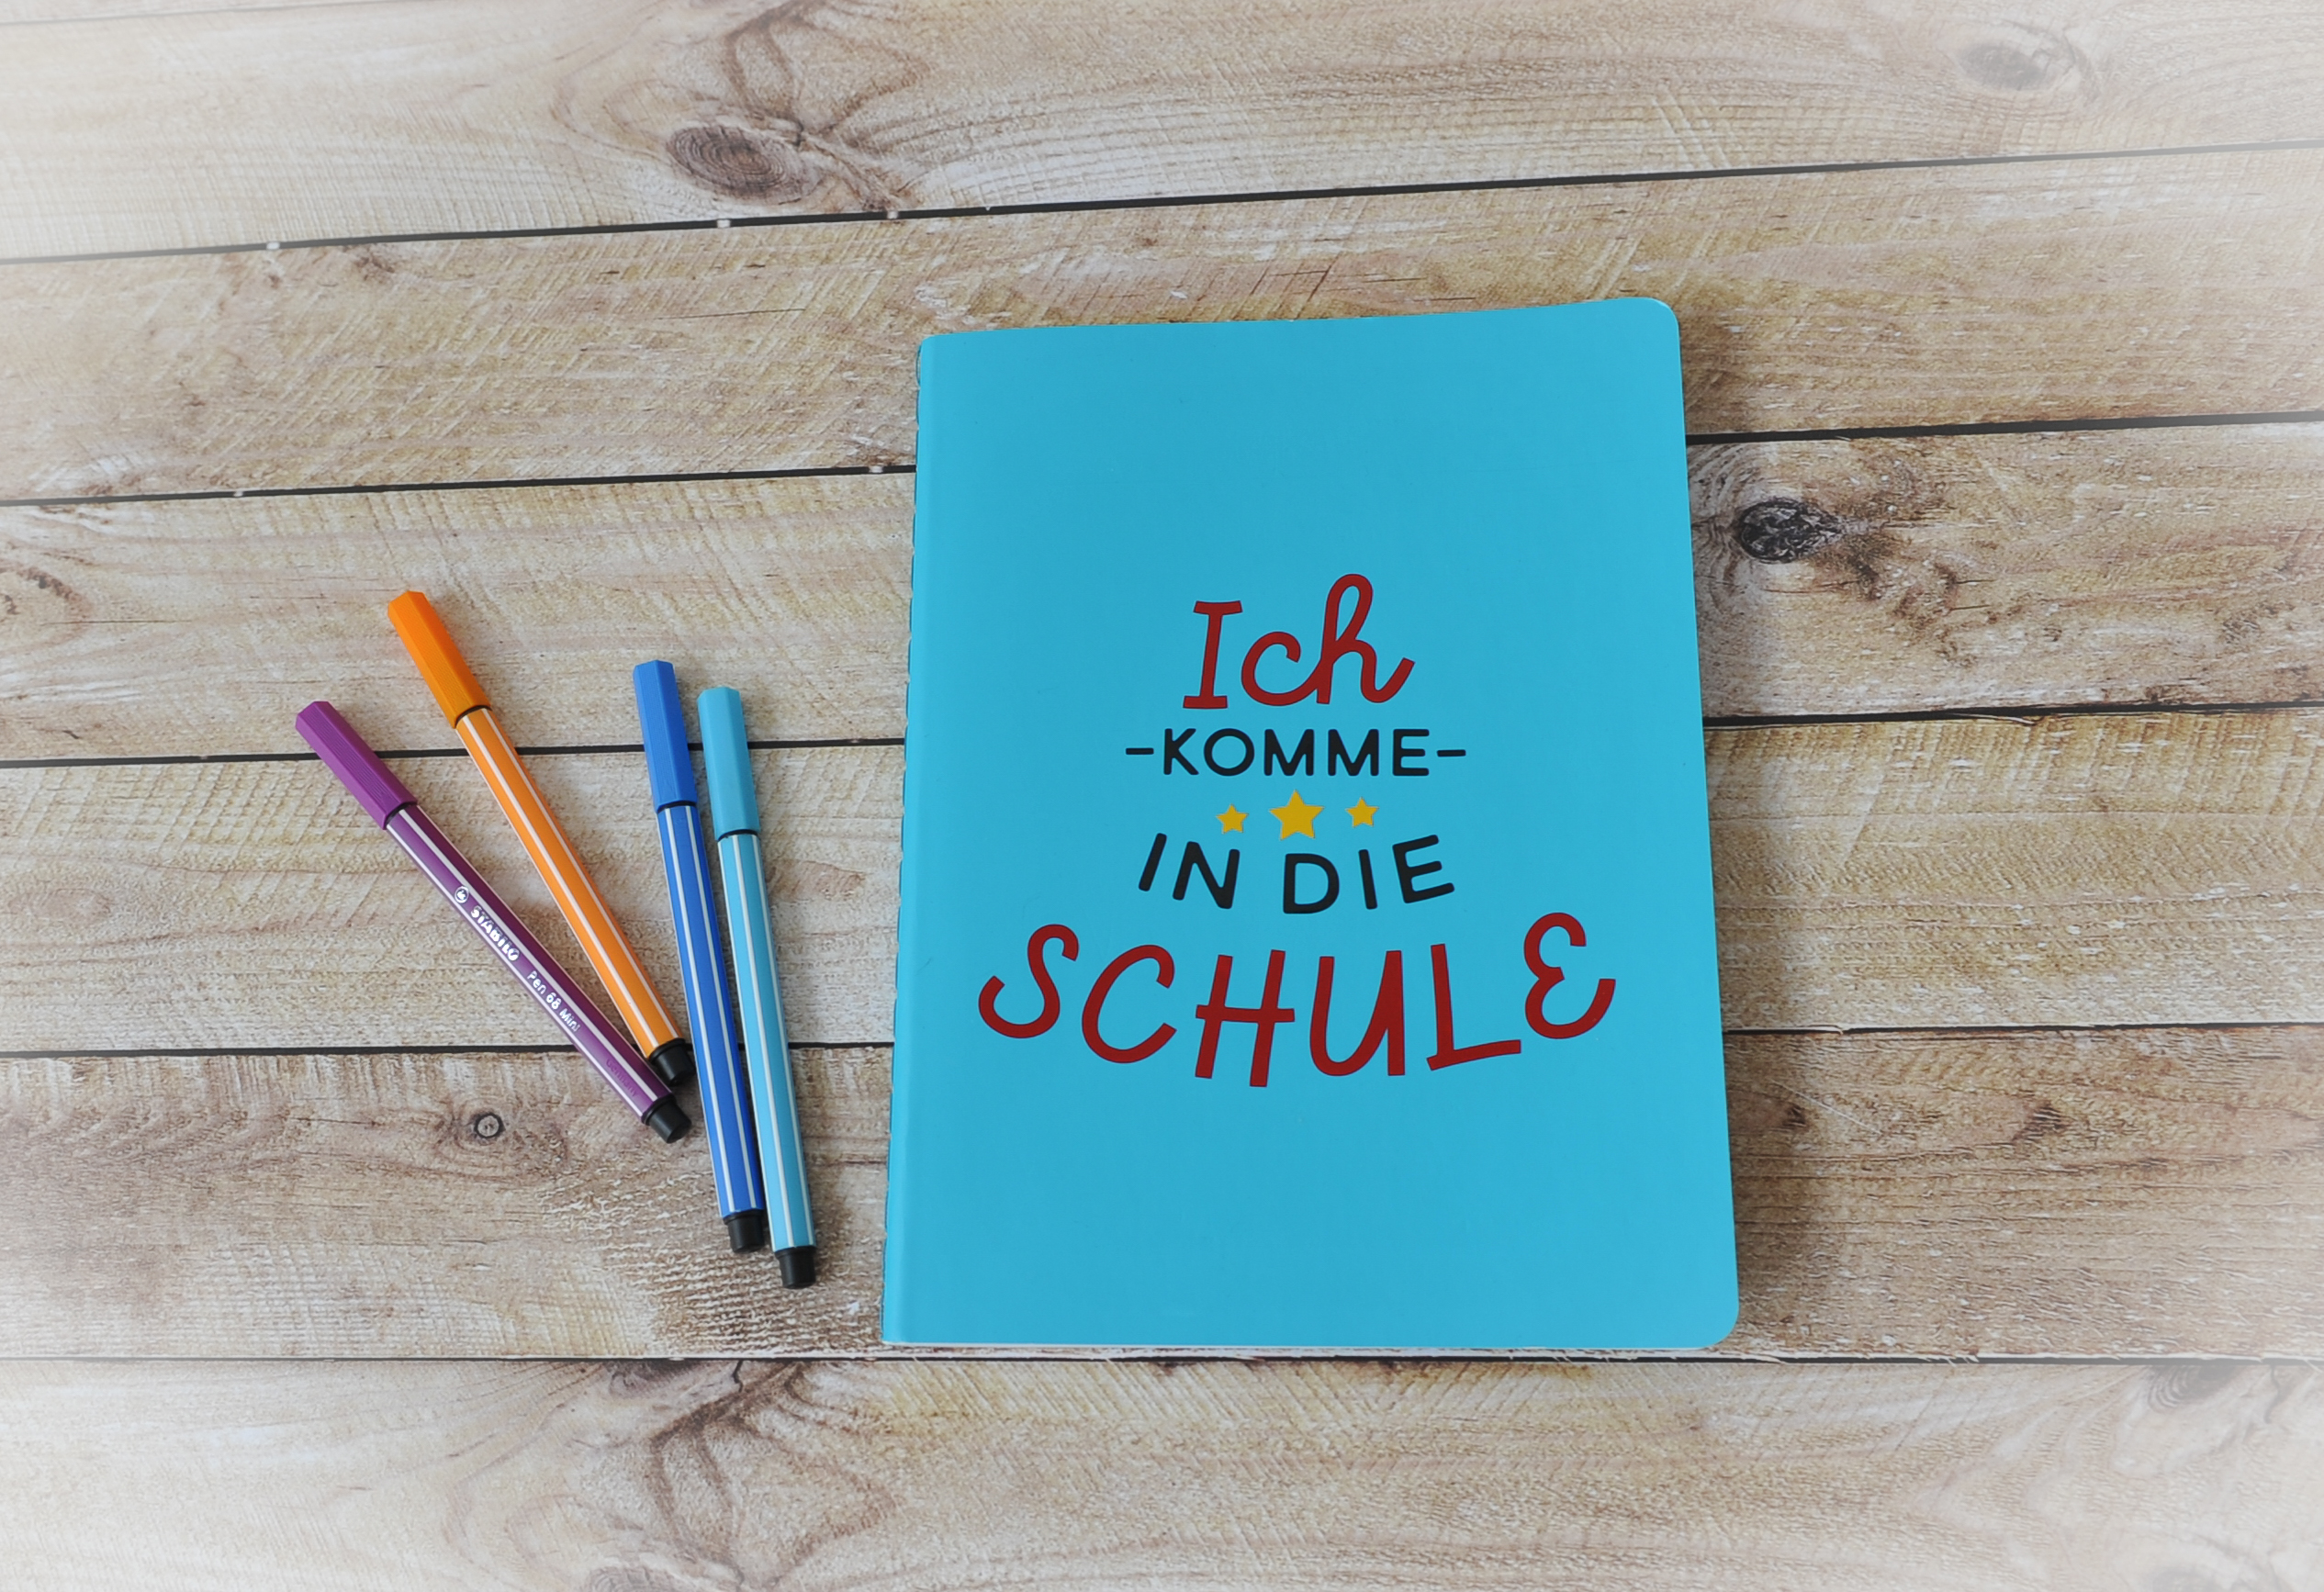 Ich
-KOMME-
IN DIE
SCHULE
STABILO Pen 68 Mini